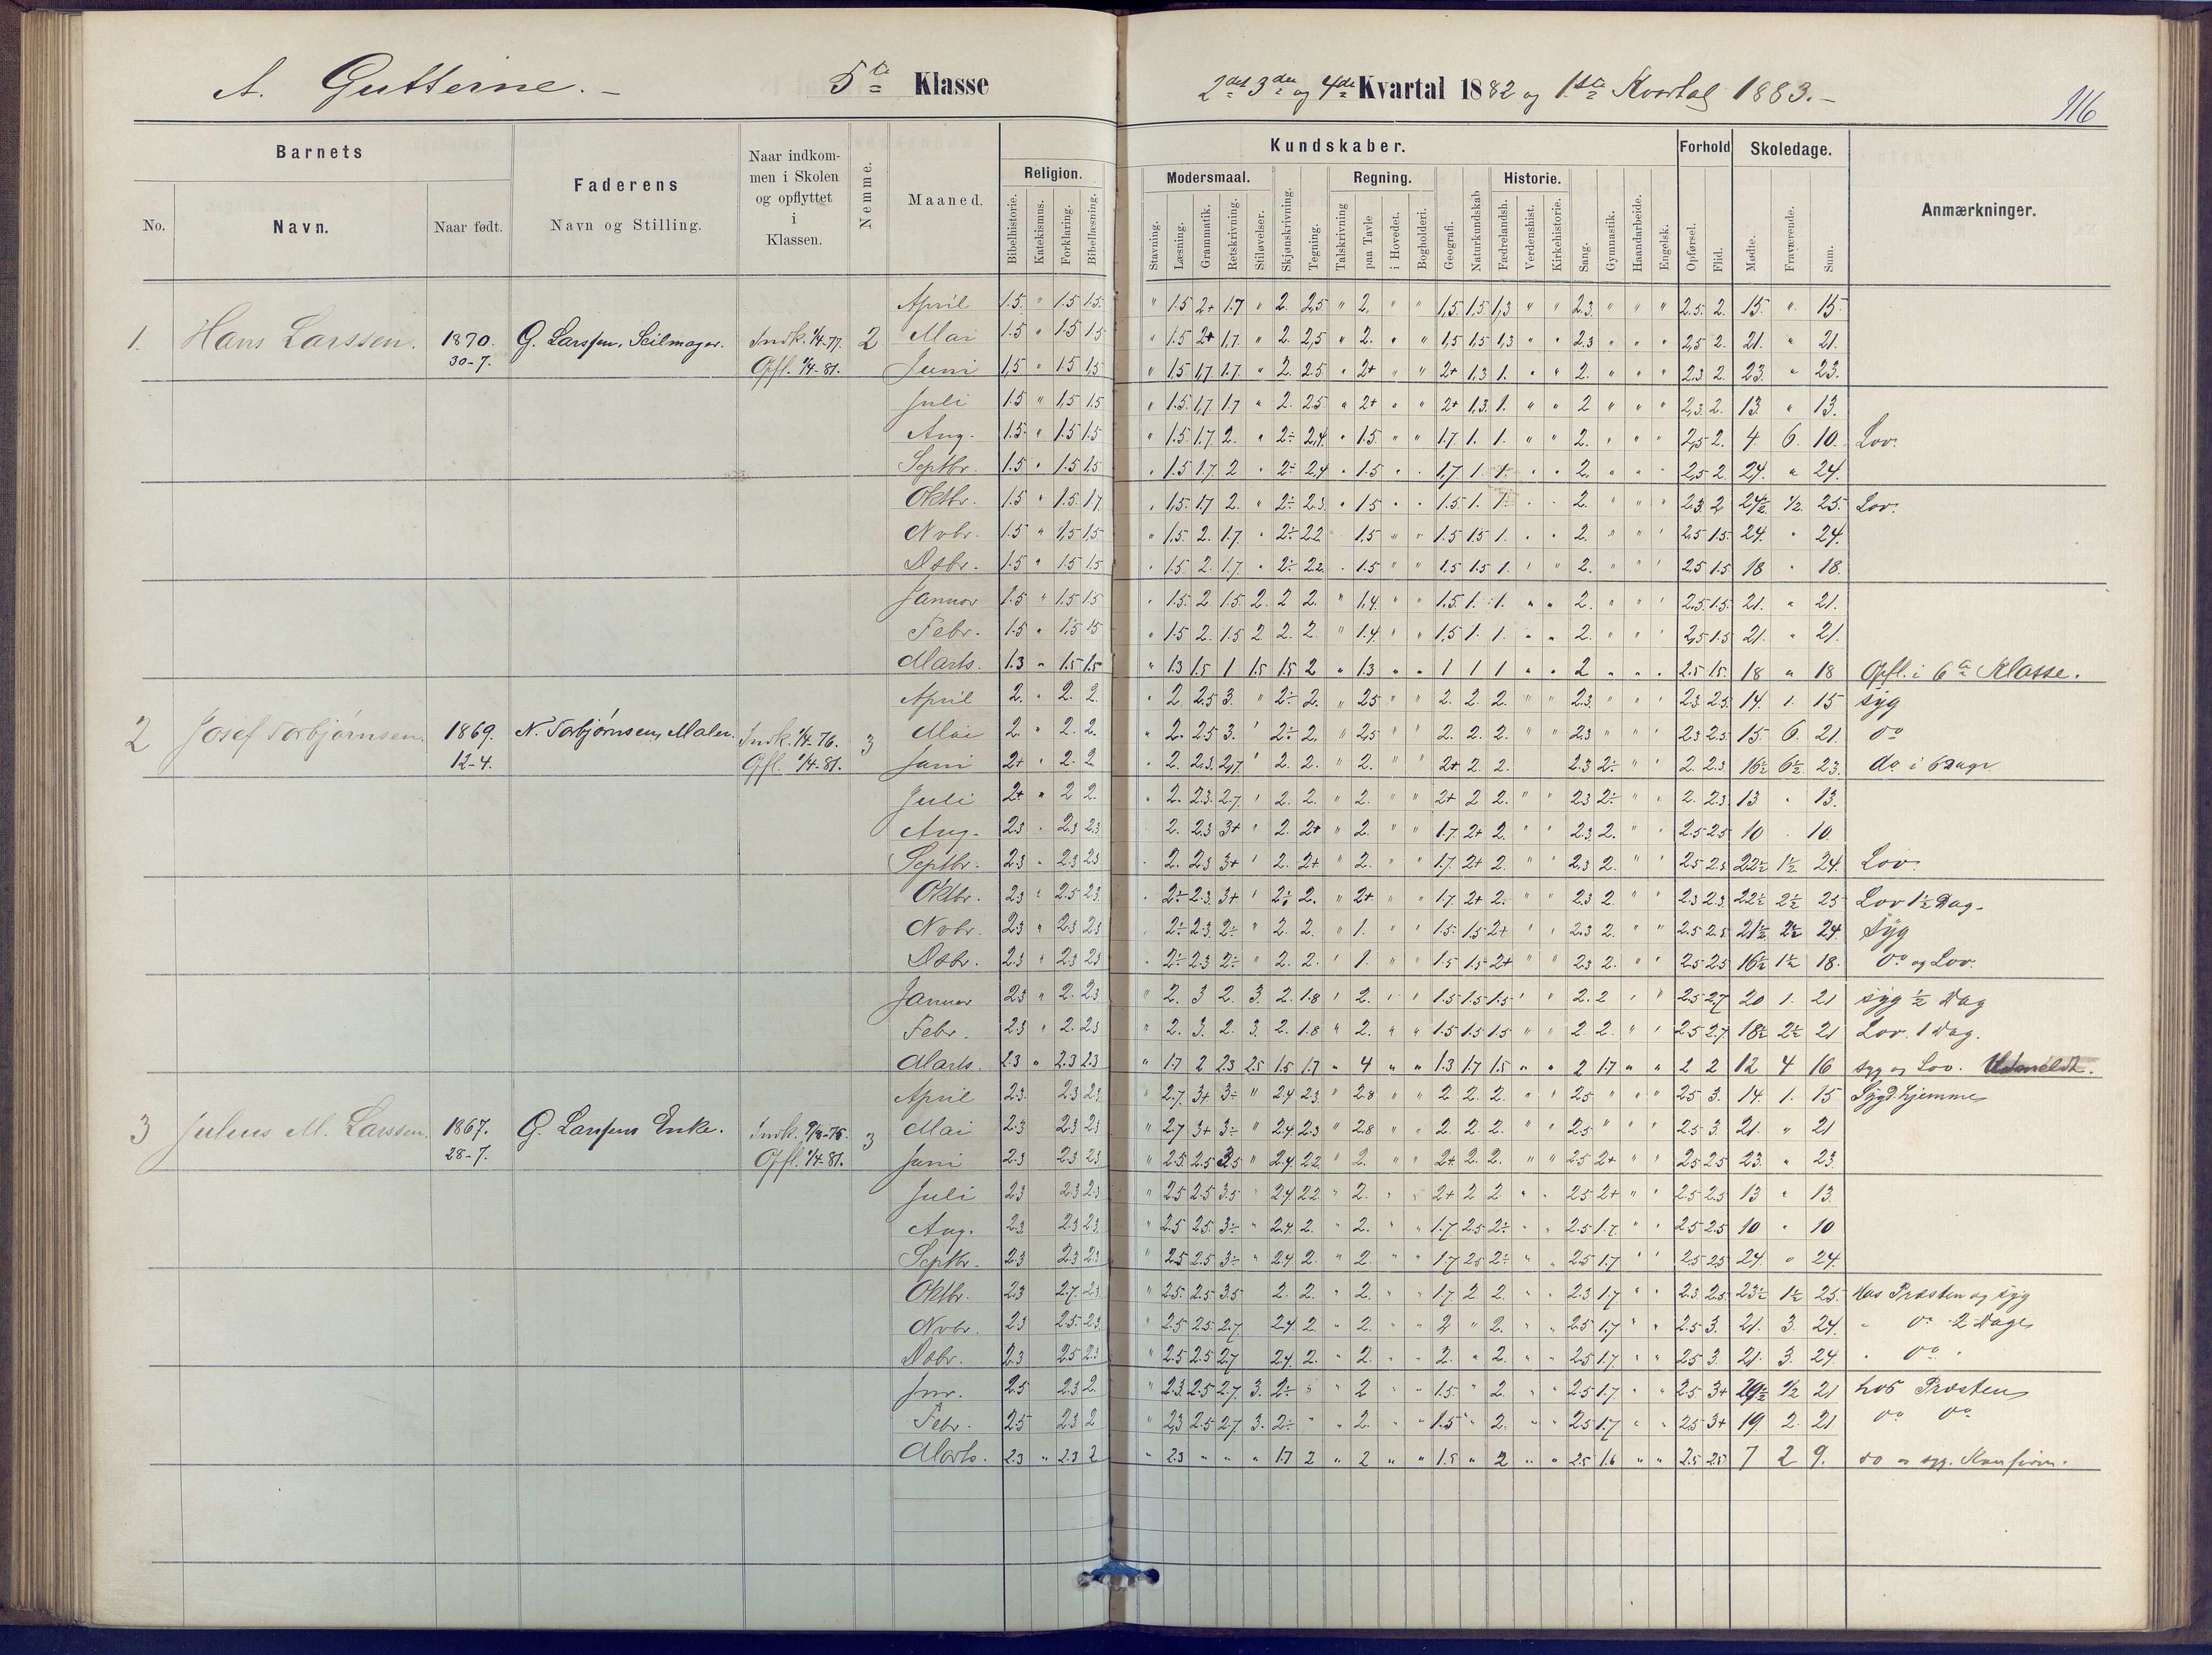 A. Gutterne. — 5te Klasse 2det 3die og 4de Kvartal 1882 og 1ste Kvartal 1883. —
116
Barnets
Faderens
Naar indkommen i Skolen og opflyttet i Klassen.
Nemme.
Maaned.
Religion.
Kundskaber.
Forhold
Skoledage.
Anmærkninger.
Modersmaal.
Regning.
Historie.
No. Navn. Naar født. Navn og Stilling.
Bibelhistorie. Katekismus. Forklaring. Bibellæsning. Stavning. Læsning. Grammatik. Retskrivning. Stiløvelser. Skjønskrivning. Tegning. Talskrivning paa Tavle i Hovedet. Bogholderi. Geografi. Naturkundskab Fædrelandsh. Verdenshist. Kirkehistorie. Sang. Gymnastik. Haandarbeide. Engelsk. Opførsel. Flid. Mødte. Fraværende. Sum.
April 1.5 " 1.5 1.5 " 1.5 2+ 1.7 " 2. 2,5 " 2. " " 1,5 1,5 1,3 " " 2.3 " " " 2.5 2. 15. " 15.
1. Hans Larssen. 1870. G. Larssen, Seilmager. Indk. 1/4-77. 2 Mai 1.5 " 1.5 1.5 " 1.5 2+ 1,7 " 2. 2,5 " 2. " " 1,5 1,5 1,3 " " 2.3 " " " 2,5 2. 21. " 21.
30-7. Opfl. 1/4-81. Juni 1,5 " 1.5 1,5 " 1,5 1,7 1.7 " 2. 2.5 " 2+ " " 2+ 1,3 1. " " 2. " " " 2,3 2. 23. " 23.
Juli 1.5 " 1,5 1.5 " 1.5 1,7 1.7 " 2. 2.5 " 2+ " " 2+ 1,3 1. " " 2 " " " 2,3 2. 13. " 13.
Aug. 1.5 " 1.5 1.5 " 1.5 1.7 2. " 2÷ 2,4 " 1.5 " " 1.7 1. 1. " " 2. " " " 2,5 2. 4 6. 10. Lov.
Septbr. 1.5 " 1.5 1.5 " 1.5 1.7 2 " 2÷ 2.4 " 1.5 " " 1,7 1. 1. " " 2. " " " 2,5 2. 24. " 24.
Oktbr. 1.5 " 1.5 1.7 " 1,5 1.7 2. " 2÷ 2.3 " 1.5 " " 1.5 1. 1. " " 2. " " " 2,3 2 24½ ½ 25. Lov.
Novbr. 1.5 " 1,5 1.5 " 1.5 2. 1.7 " 2÷ 2.2 1.5 " " 1.5 1.5 1. " " 2. " " " 2.5 1.5 24. " 24.
Dsbr. 1.5 " 1.5 1.5 " 1.5 2. 1.7 " 2÷ 2.2 " 1.5 " " 1.5 1.5 1. " " 2. " " " 2.5 1.5 18 " 18.
Januar 1.5 " 1.5 1.5 " 1.5 2 1.5 2. 2 2. " 1,4 " " 1,5 1. 1. " " 2. " " " 2.5 1.5 21. " 21.
Febr. 1.5 " 1.5 1.5 " 1.5 2. 1.5 2 2. 2. " 1.4 " " 1,5 1. 1. " " 2. " " " 2,5 1.5 21. " 21.
Marts. 1.3 " 1.5 1.5 " 1.3 1.5 1 1.5 1.5 2 " 1.3 " " 1 1 1 " " 2 " " " 2.5 1.5 18 " 18 Opfl. i 6te Klasse.
April 2. " 2. 2. " 2 2.5 3. " 2÷ 2. " 2.5 " " 2. 2. 2. " " 2.3 " " " 2.3 2.5 14. 1. 15 syg
2 Josef Torbjørnsen. 1869. N. Torbjørnsen, Maler. Indk. 1/4-76. 3 Mai 2. " 2. 2. " 2. 2.5 3. " 2÷ 2. " 2.5 " " 2. 2. 2. " " 2.3 " " " 2.3 2.5 15. 6. 21. do
12-4. Opfl. 1/4-81. Juni 2+ " 2. 2 " 2. 2.3 2,7 " 2. 2. " 2. " " 2+ 2. 2. 2.3 2÷ " " 2. 2.3 16½ 6½ 23. do i 6 Dage
Juli 2+ " 2 2. " 2. 2.3 2.7 " 2. 2. " 2. " " 2+ 2 2. " " 2.3 2÷ " " 2. 2.3 13 " 13.
Aug. 2.3 " 2.3 2.3 2. 2.3 3+ " 2. 2+ " 2. " " 1.7 2+ 2. " " 2.3 2. " " 2.5 2.5 10 " 10.
Septbr. 2.3 " 2.3 2.3 " 2. 2.3 3+ " 2. 2+ " 2. " " 1.7 2+ 2. " " 2.3 2. " " 2.5 2.5 22½ 1½ 24. Lov.
Oktbr. 2.3 " 2.5 2.3 " 2÷ 2.3 3+ " 2÷ 2. " 2+ " " 1.7 2+ 2. " " 2.3 2 " " 2.3 2.3 22½ 2½ 25 Lov 1½ Dag.
Novbr. 2.3 " 2.3 2.3 " 2÷ 2.3 2÷ " 2. 2. " 1. " " 1.5 1.5 2+ " " 2.3 2. " " 2.5 2.5 21½ 2½ 24. Syg
Dsbr. 2.3 " 2.3 2.3 " 2÷ 2.3 2÷ " 2. 2. " 1. " " 1.5 1.5 2+ " " 2.3 2. " " 2.5 2.5 16½ 1½ 18. do og Lov.
Januar 2.3 " 2. 2.3 " 2. 3 2. 3. 2. 1.8 " 2. " " 1.5 1.5 1.5 " " 2. 2 " " 2.5 2.7 20 1. 21 syg ½ Dag
Febr. 2.3 " 2. 2.3 " 2. 3. 2. 3. 2. 1.8 " 2. " " 1.5 1.5 1.5 " " 2 2. " " 2.5 2.7 18½ 2½ 21 Lov. 1 Dag.
Marts. 2.3 " 2.3 2.3 " 1.7 2 2.3 2.5 1.5 1.7 " 4 " " 1.3 1.7 1.5 " " 2 1.7 " " 2 2 12 4 16 syg og Lov. Udmeldt.
April 2.3 2.3 2.3 " 2.7 3+ 3÷ " 2.4 2.3 " 2.8 " " 2. 2. 2. " " 2.5 " " " 2.5 3. 14. 1. 15 Sygd. hjemme
3 Julius M. Larssen. 1867. G. Larssens Enke. Indk. 9/8-75. 3 Mai 2.3 2.3 2.3 " 2.7 3+ 3÷ " 2.4 2.3 " 2.8 " " 2. 2. 2. " " 2.5 " " " 2.5 3. 21. " 21
28-7. Opfl. 1/4-81. Juni 2.3 2.3 2.3 " 2.5 2.5 3.5 " 2.4 2.2 " 2. " " 2+ 2. 2. " " 2.5 2+ " " 2.5 2.5 23. " 23.
Juli 2.3 2.3 2.3 " 2.5 2.5 3.5 " 2.4 2.2 " 2. " " 2+ 2 2 " " 2.5 2+ " " 2.5 2.5 13 " 13.
Aug. 2.3 2.3 2.3 " 2.5 2.5 3÷ " 2.4 2. " 2. " " 1.7 2.5 2÷ " " 2.5 1.7 " " 2.5 2.5 10 " 10
Septbr. 2.3 2.3 2.3 " 2.5 2.5 3÷ " 2.4 2. " 2. " " 1.7 2.5 2÷ " " 2.5 1.7 " " 2.5 2.5 24. " 24.
Oktbr. 2.3 2.7 2.3 " 2.5 2.5 3.5 2. 2. " 2. " " 1.7 2 2. " " 2.3 1.7 " " 2.3 2.5 23½ 1½ 25. hos Præsten og syg
Novbr. 2.3 2.5 2.3 " 2.5 2.5 2.7 2.4 2 " 2. " " 2 " 2. " " 2.5 1.7 " " 2.5 3. 21. 3. 24. " do 2 Dage
Dsbr. 2.3 2.5 2.3 " 2.5 2.5 2.7 2.4 2. " 2. " " 2. " 2. " " 2.5 1.7 " " 2.5 3. 21. 3. 24. " do "
Jnr. 2.5 2.3 2 " 2.3 2.5 2.7 3. 2÷ " " 2 " " 1.5 " 2. " " 2.5 1.7 " " 2.5 3+ ½ 21 hos Præsten
Febr. 2.5 2.3 2 " 2,3 2.5 2.7 3. 2÷ " " 2. " " 1.5 " 2. " " 2.5 1.7 " " 2.5 3+ 19 2. 21 do do
Marts. 2.3 " 2.3 2 " 2.3 " " " 1.7 2 " 2 " " 1.5 " 2 " " 2.5 1.6 " " 2.5 2.5 7 2 9. do og syg. Konfirm.